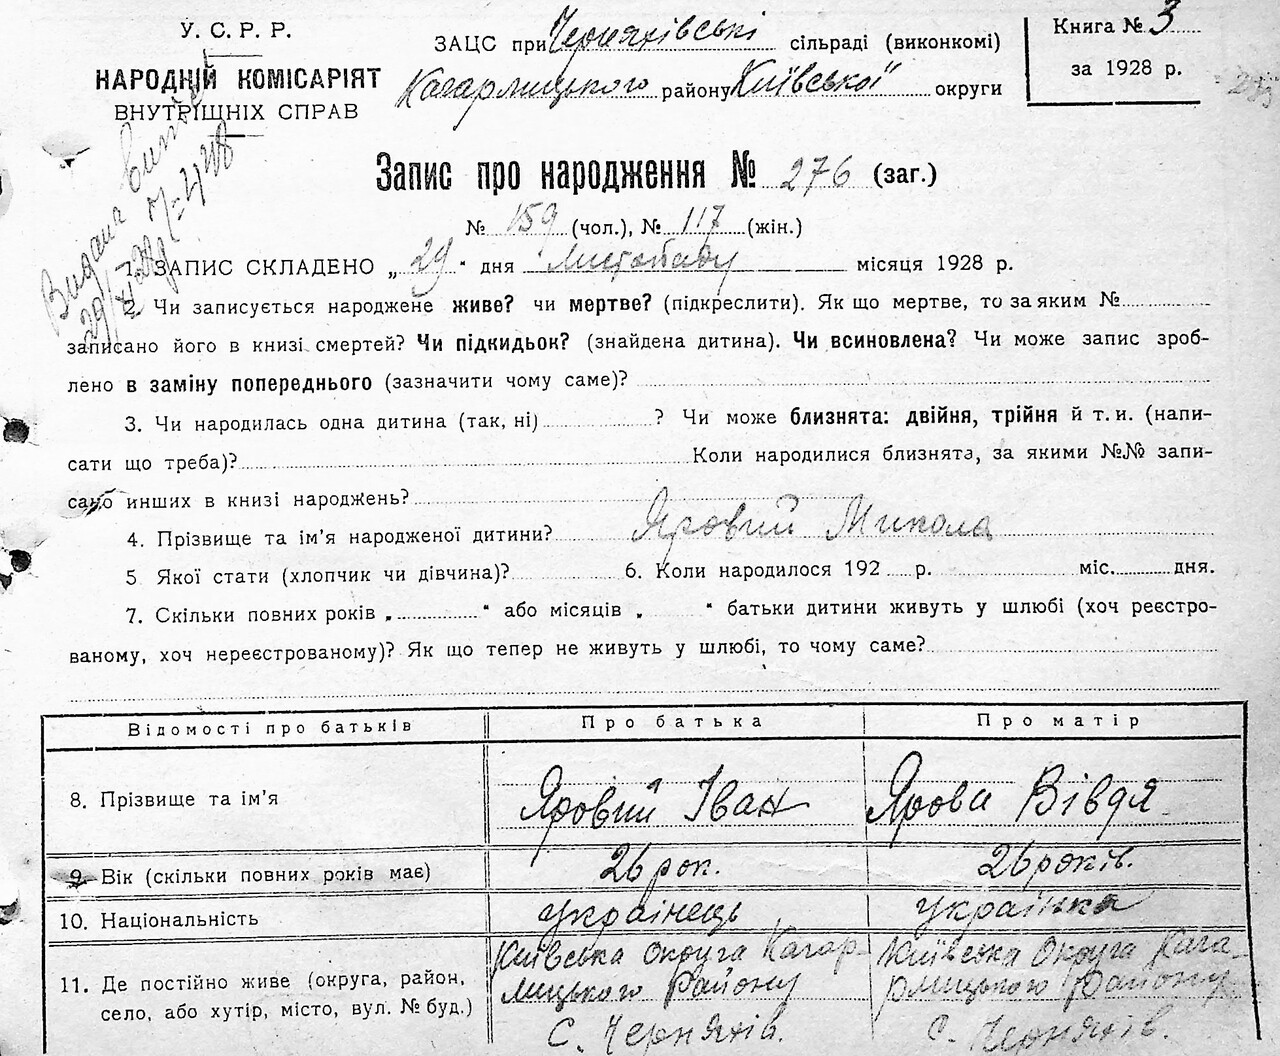 У. С. Р. Р.
НАРОДНІЙ КОМІСАРІЯТ
ВНУТРІШНІХ СПРАВ
ЗАЦС при Черняхівській сільраді (виконкомі)
Кагарлицького району Київської округи
Книга № 3
за 1928 р.
Видана витяг
29/XI 28р
Запис про народження № 276 (заг.)
№ 159 (чол.), № 117 (жін.)
1. ЗАПИС СКЛАДЕНО „ 29 “ дня Листопаду місяця 1928 р.
2. Чи записується народжене живе? чи мертве? (підкреслити). Як що мертве, то за яким №
записано його в книзі смертей? Чи підкидьок? (знайдена дитина). Чи всиновлена? Чи може запис зроб-
лено в заміну попереднього (зазначити чому саме)?
3. Чи народилась одна дитина (так, ні) ? Чи може близнята: двійня, трійня й т. и. (напи-
сати що треба)? Коли народилися близнята, за якими №№ запи-
сано инших в книзі народжень?
4. Прізвище та ім'я народженої дитини? Яровий Микола
5 Якої стати (хлопчик чи дівчина)? 6. Коли народилося 192 р. міс. дня.
7. Скільки повних років „ “ або місяців „ “ батьки дитини живуть у шлюбі (хоч реєстро-
ваному, хоч нереєстрованому)? Як що тепер не живуть у шлюбі, то чому саме?
Відомості про батьків Про батька Про матір
8. Прізвище та ім'я Яровий Іван Ярова Вівдя
9. Вік (скільки повних років має) 26 рок. 26 років.
10. Національність українець українка
11. Де постійно живе (округа, район,
село, або хутір, місто, вул. № буд.)
Київська Округа Кагар-
лицького Району
С. Черняхів.
Київська Округа Кага-
рлицького Району
С. Черняхів.